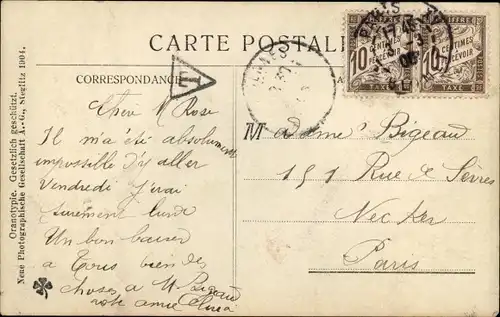 CARTE POSTALE
CORRESPONDANCE
T
Chère M Rose
Il m'a été absolument
impossible d'y aller
Vendredi J'irai
surement lundi
Un bon baiser
a tous bien des
choses a M Bigeau
votre amie
Madame Bigeau
151 Rue de Sèvres
Necker
Paris
CHIFFRE
10
CENTIMES
A
PERCEVOIR
TAXE
CHIFFRE
10
CENTIMES
A
PERCEVOIR
TAXE
PARIS
Oranotypie. Gesetzlich geschützt.
Neue Photographische Gesellschaft A.-G., Steglitz 1904.